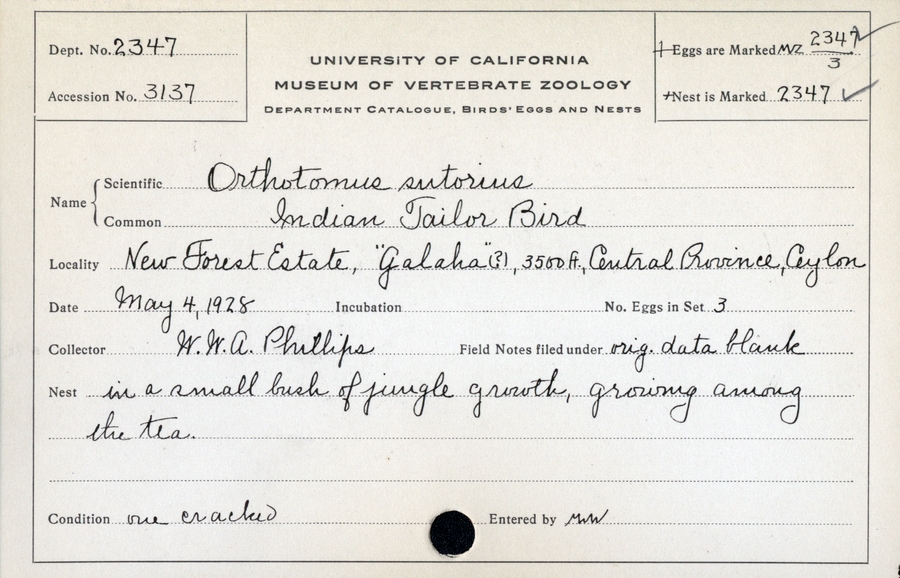 Dept. No. 2347
Accession No. 3137
UNIVERSITY OF CALIFORNIA
MUSEUM OF VERTEBRATE ZOOLOGY
DEPARTMENT CATALOGUE, BIRDS' EGGS AND NESTS
Eggs are Marked MVZ 2347/3
Nest is Marked 2347
Name
Scientific Orthotomus sutorius
Common Indian Tailor Bird
Locality New Forest Estate, "Galaha"(?), 3500 ft, Central Province, Ceylon
Date May 4, 1928 Incubation No. Eggs in Set 3
Collector W.W.A. Phillips Field Notes filed under orig. data blank
Nest in a small bush of jungle growth, growing among
the tea.
Condition one cracked Entered by